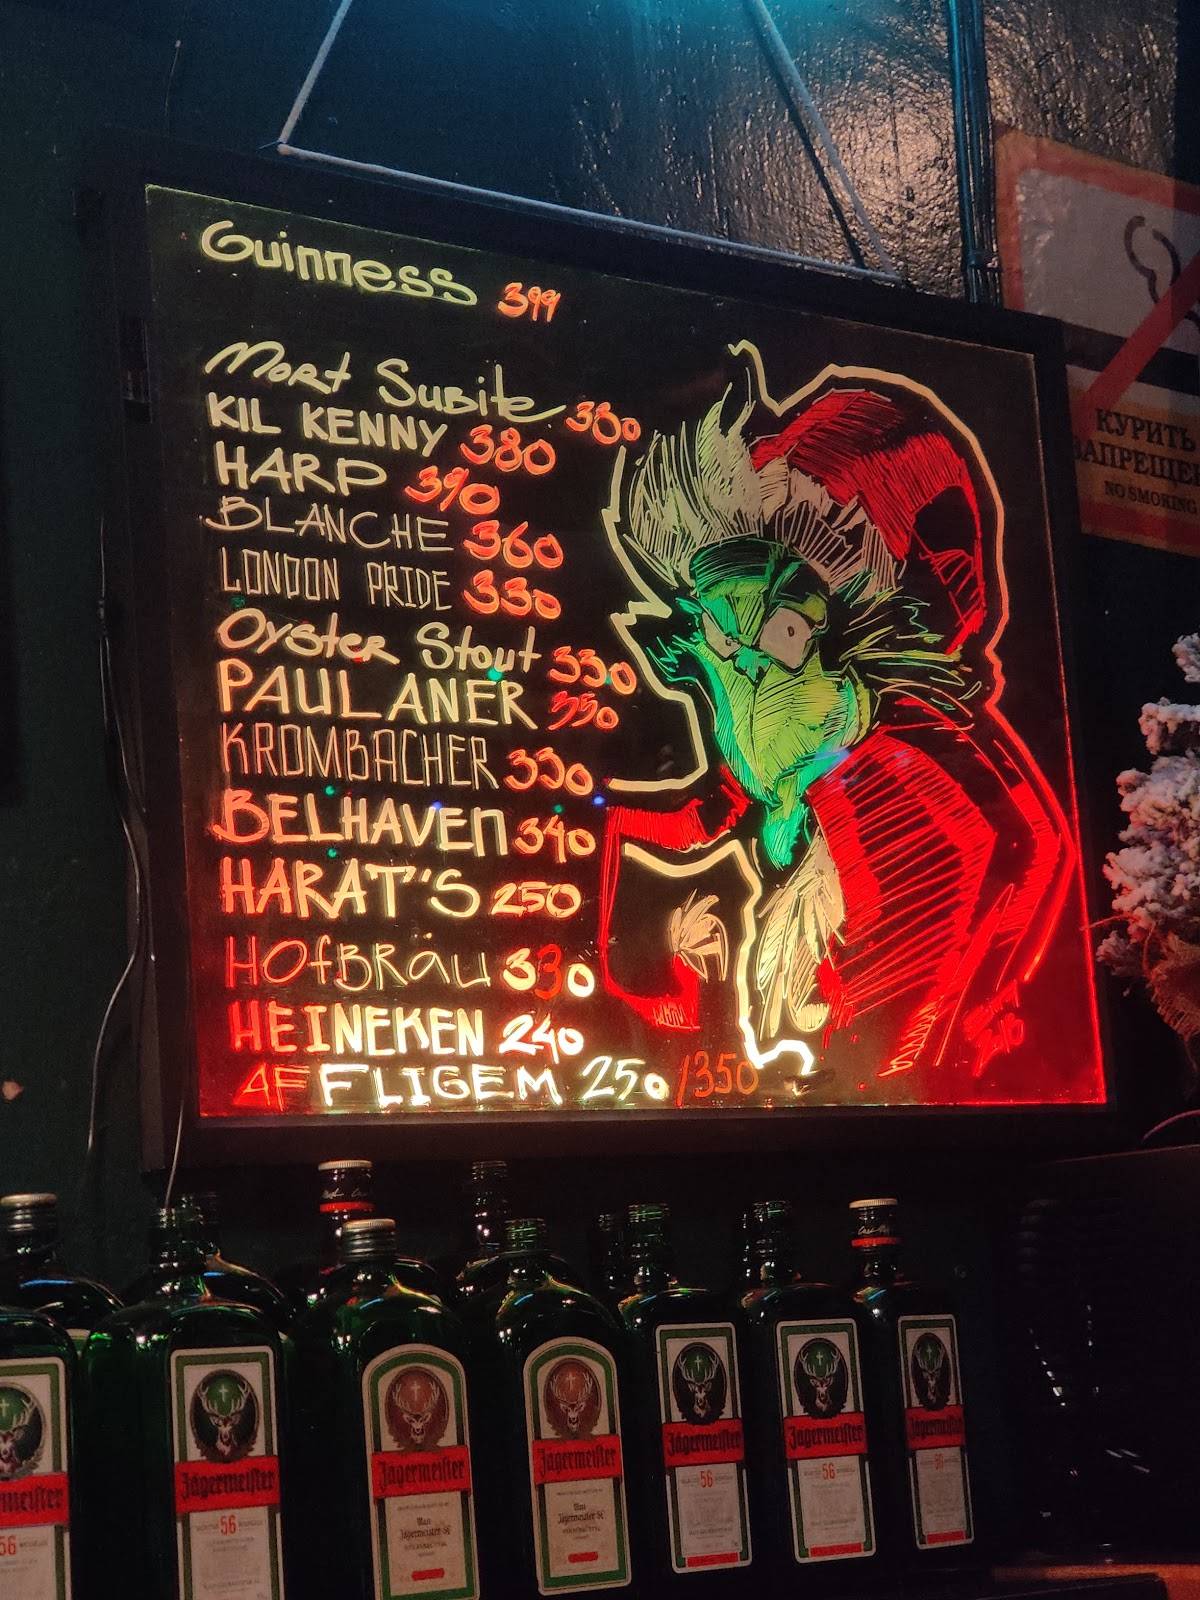 Guinness 399
Mort Subite 380
KIL KENNY 380
HARP 390
BLANCHE 360
LONDON PRIDE 330
Oyster Stout 330
PAULANER 350
KROMBACHER 330
BELHAVEN 340
HARAT"S 250
HOfBRäu 330
HEINEKEN 240
AF FLIGEM 250/350
КУРИТЬ
ЗАПРЕЩЕ
NO SMOKING
Jägermeister
56
Jägermeister
56
Jägermeister
Jägermeister
Jägermeister
56
Jägermeister
56
Jägermeister
56